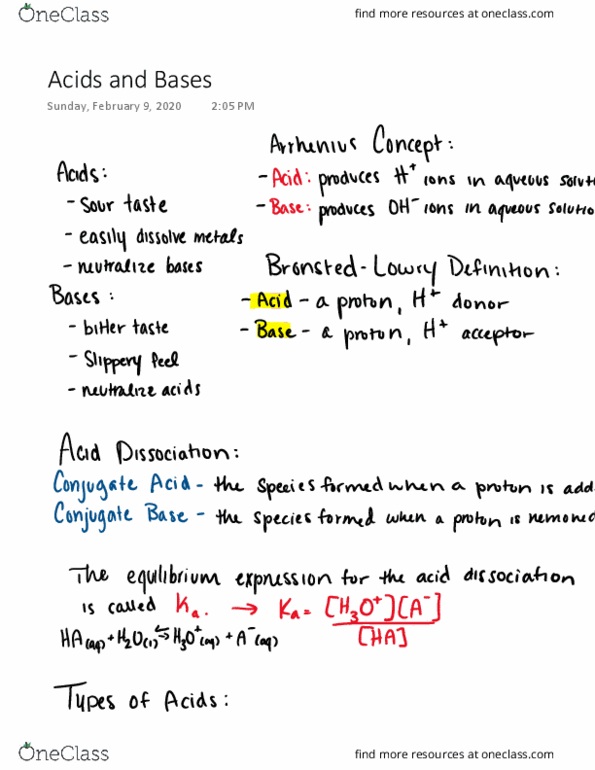 OneClass
find more resources at oneclass.com
Acids and Bases
Sunday, February 9, 2020 2:05 PM
Acids:
- Sour taste
- easily dissolve metals
- neutralize bases
Bases:
- bitter taste
- Slippery feel
- neutralize acids
Arrhenius Concept:
- Acid: produces H⁺ ions in aqueous solut
- Base: produces OH⁻ ions in aqueous solutio
Bronsted-Lowry Definition:
- Acid - a proton, H⁺ donor
- Base - a proton, H⁺ acceptor
Acid Dissociation:
Conjugate Acid - the species formed when a proton is add
Conjugate Base - the species formed when a proton is removed
The equlibrium expression for the acid dissociation
is called Ka. → Ka = [H₃O⁺][A⁻]
[HA]
HA(aq) + H₂O(l) ⇌ H₃O⁺(aq) + A⁻(aq)
Types of Acids:
OneClass
find more resources at oneclass.com